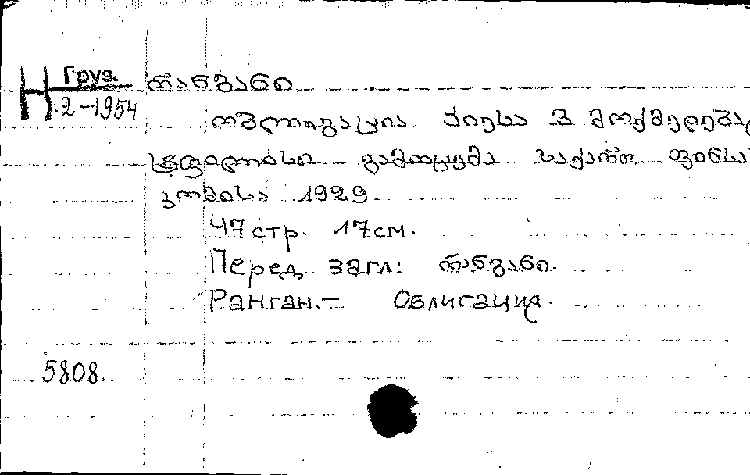 Груз
Н 2-1954
რანგანი
ობლიგაცია პიესა 3 მოქმედებად
ტფილისი გამოცემა საქართ. ფინსახ
კომისა 1929
47 стр. 17 см.
Перед загл: რანგანი.
Ранган.— Облигация.
5808.